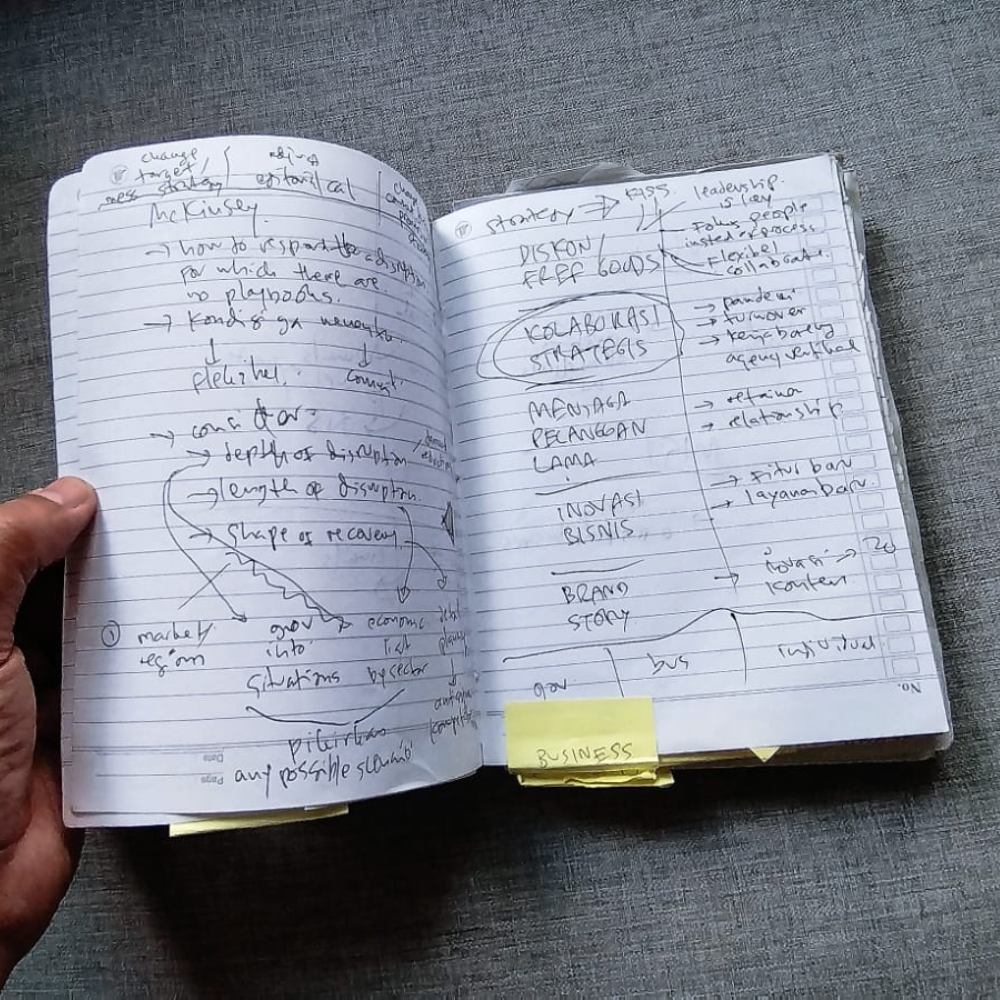 change
target /
strategy
editorial cal
McKinsey.
→ how to respond to a disruption
for which there are
no playbooks.
→ kondisi ga menentu.
↓ ↓
flexibel.
→ depth of disruption
→ length of disruption.
→ shape of recovery
① market/
region
gov
into
situations
economic
list
by sector
pikirkan
any possible
Date
Page
strategy ⇒ KISS.
leadership
is key
Fokus people
insted of process
Flexibel
collaborate.
DISKON /
FREE GOODS
KOLABORASI
STRATEGIS
→ pandemi
→ turnover
→ kerja bareng
agency vertikal
MENJAGA
PELANGGAN
LAMA
→ retainer
→ relationship
INOVASI
BISNIS
→ fitur baru
→ layanan baru.
BRAND
STORY
→ inovasi →
konten
gov
bus
individual
No.
BUSINESS